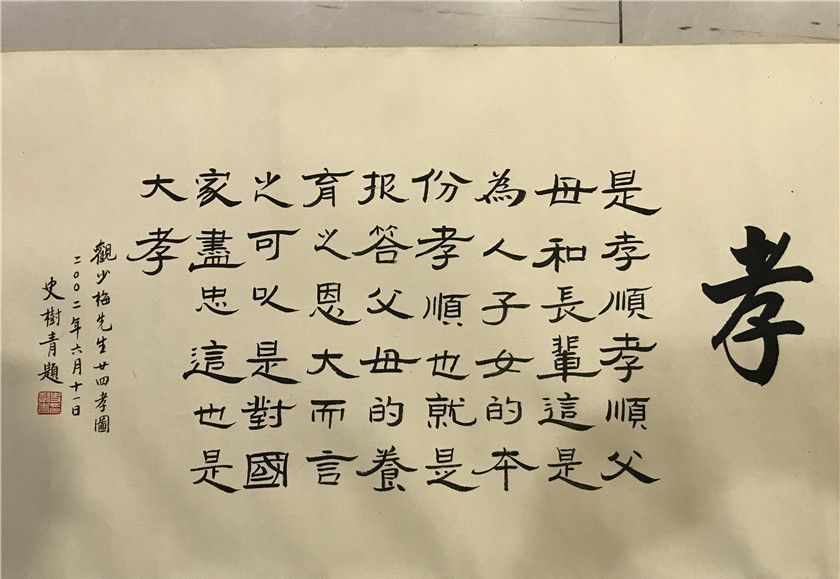 孝
是孝順孝順父
母和長輩這是
為人子女的本
份孝順也就是
报答父母的養
育之恩大而言
之可以是對國
家盡忠這也是
大孝
觀少梅先生廿四孝圖
二〇〇二年六月十一日
史樹青題